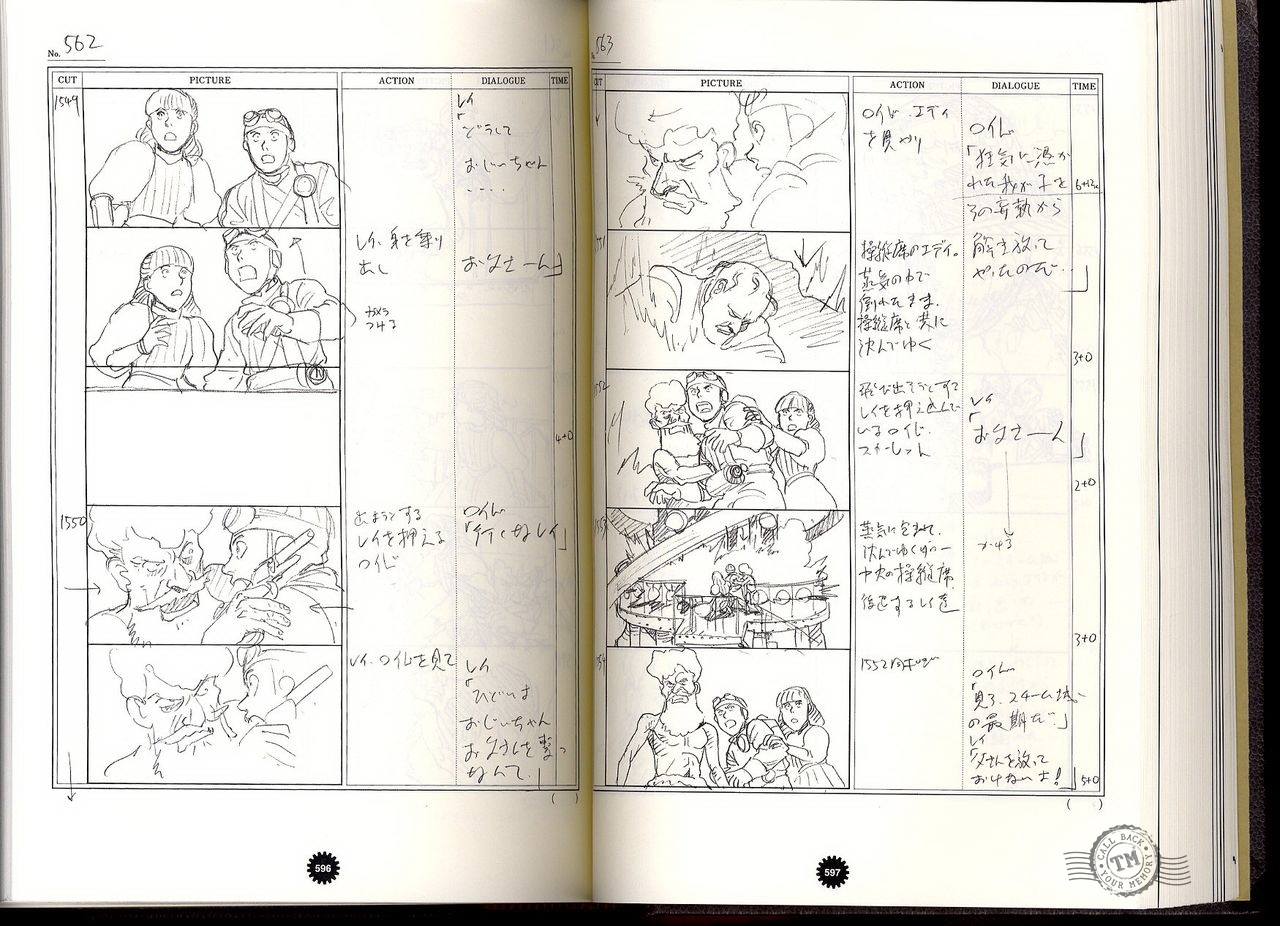 No. 562
CUT
PICTURE
ACTION
DIALOGUE
TIME
1549
レイ
「どうして
おじいちゃん
‥‥
レイ、身を乗り
出し
お父さーん」
カメラ
4+0
1550
出ようとする
レイを押える
ロイド
ロイド
「行くなレイ」
レイ、ロイドを見て
レイ
「ひどいよ
おじいちゃん
お父さんを撃つ
なんて」
( )
596
563
CUT
PICTURE
ACTION
DIALOGUE
TIME
ロイド、エディ
を見やり
ロイド
「狂気に憑か
れた我が子を
6+12
その妄執から
解き放って
やったのだ‥」
操縦席のエディ。
蒸気の中で
倒れたまま、
操縦席と共に
沈んでゆく
3+0
飛び出そうとする
レイを押え込んで
いるロイド、
スカーレット
レイ
「お父さーん」
2+0
蒸気に包まれて、
沈んでゆく
中央の操縦席
後退するレイ達
3+0
1552同ポジ
ロイド
「見ろ、スチーム城
の最期だ」
レイ
「父さんを放って
おけないよ!」
5+0
( )
597
CALL BACK
TM
YOUR MEMORY